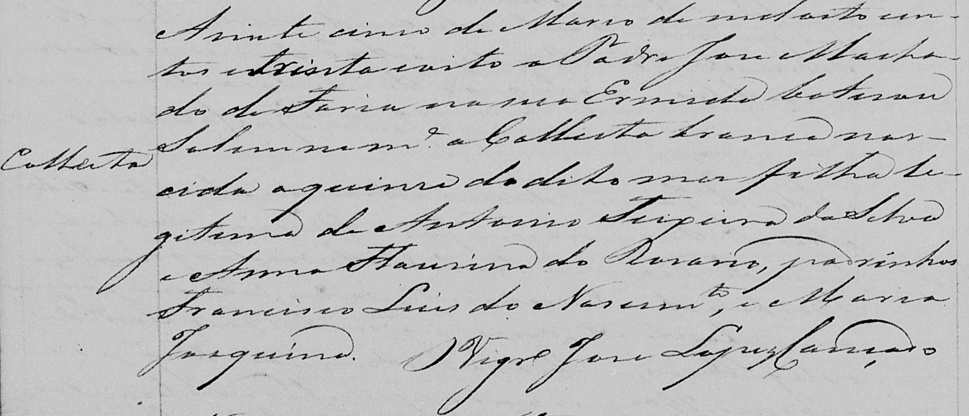 A vinte cinco de Março de mil oito cen-
tos e trinta e oito o Padre Jose Macha-
do de Faria na sua Ermida batisou
Solemnem.e a Colleta branca nas-
Colleta
cida a quinze do dito mes filha le-
gitima de Antonio Teixeira da Silva
e Anna Flausina do Rosario, padrinhos
Francisco Luis do Nascim.to, e Maria
Joaquina. O Vigr.o Jose Lopes Cançado